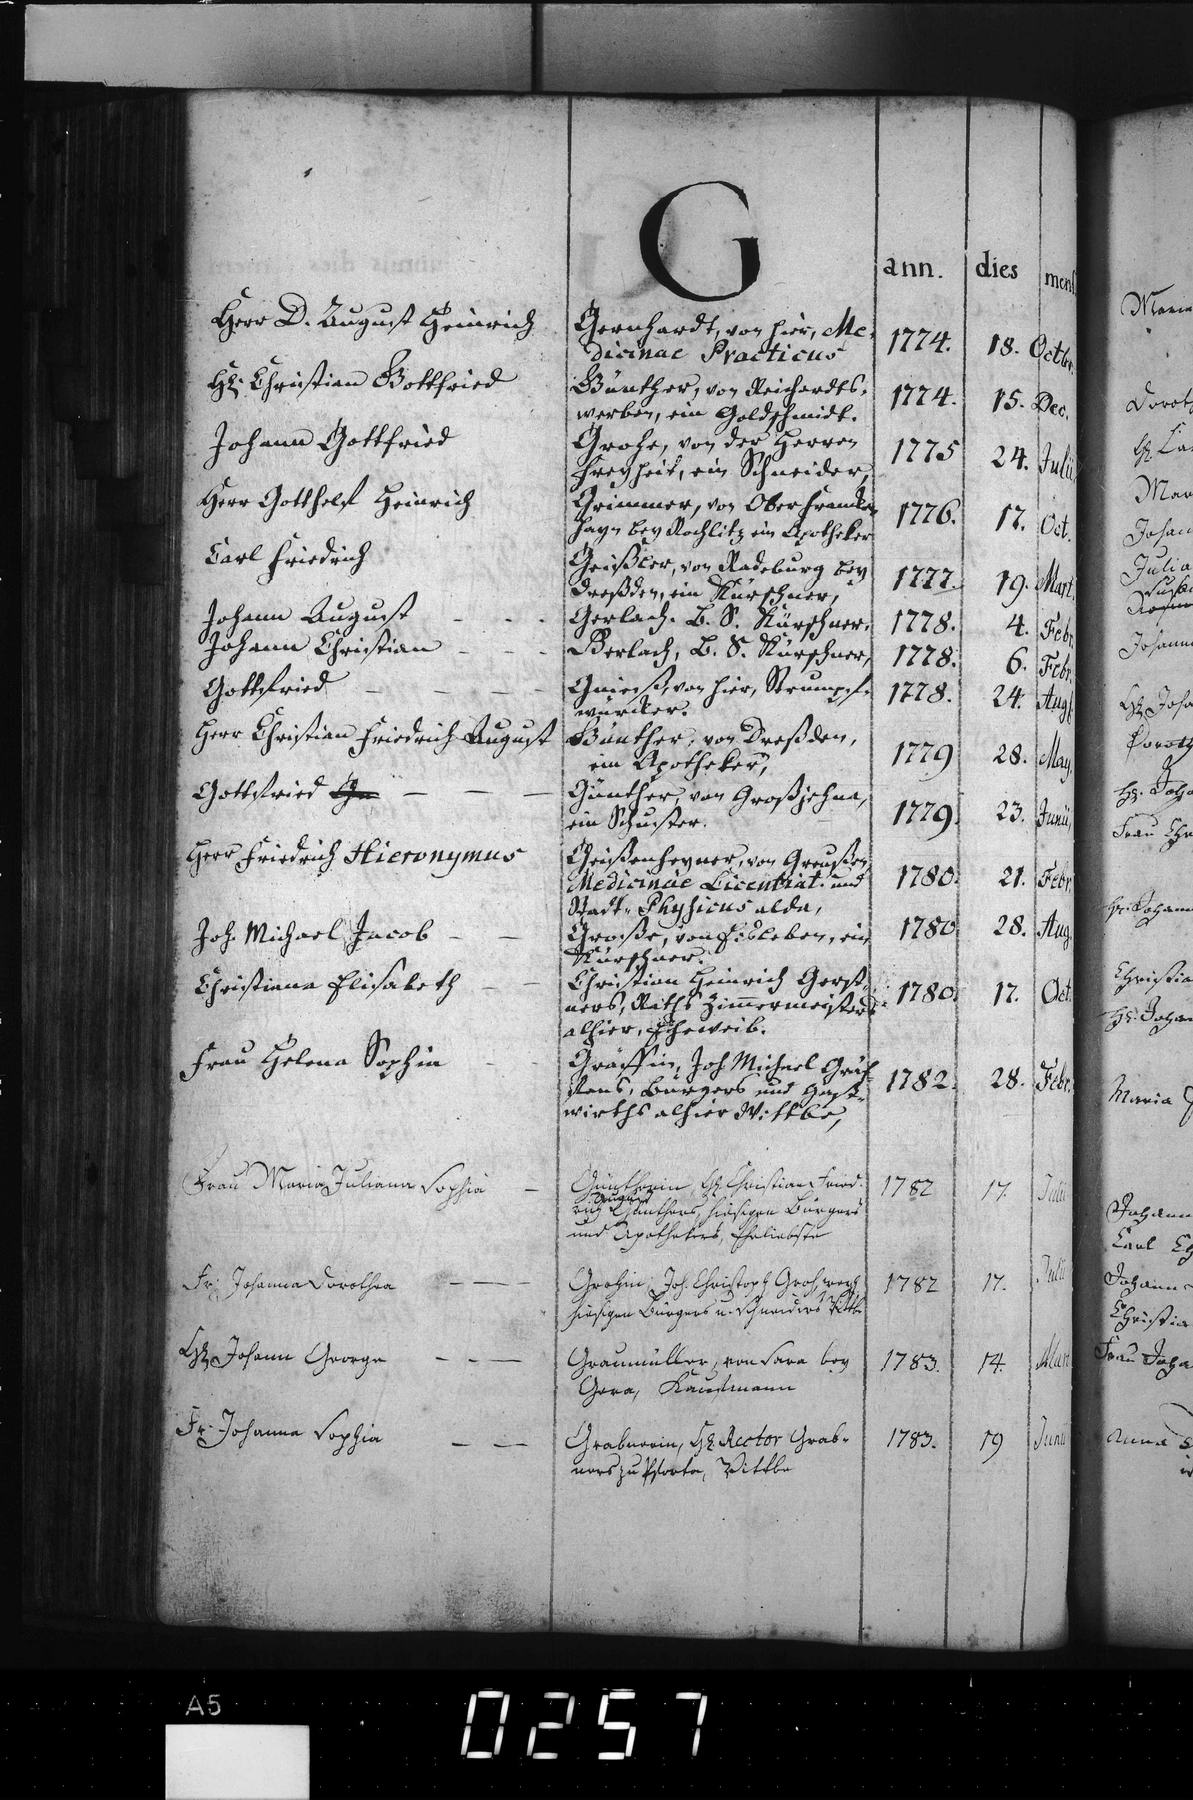 G
ann. dies mens
Herr D. August Heinrich Gernhardt, von hier, Me-
dicinae Practicus 1774. 18. Octbr.
Hr. Christian Gottfried Günther, von Reichards-
werben, ein Goldschmidt. 1774. 15. Dec.
Johann Gottfried Grohe, von der Herren
Freyheit, ein Schneider, 1775 24. Julii
Herr Gotthelf Heinrich Grimmer, von Oberfranken-
hayn bey Rochlitz ein Apotheker 1776. 17. Oct.
Carl Friedrich Geißler, von Radeburg bey
Dreßden, ein Kürschner, 1777. 19. Mart.
Johann August - - - Gerlach. B. S. Kürschner, 1778. 4. Febr.
Johann Christian - - - Gerlach, B. S. Kürschner, 1778. 6. Febr.
Gottfried - - - - von hier, Strumpf-
würcker. 1778. 24. Aug.
Herr Christian Friedrich August Günther, von Dreßden,
ein Apotheker, 1779 28. May.
Gottfried - - - Günther, von Großjehna,
ein Schuster. 1779. 23. Junii,
Herr Friedrich Hieronymus Geißenheyner, von Greußen
Medicinae Licentiat. und
Stadt-Physicus alda, 1780. 21. Febr.
Joh. Michael Jacob - - Große, von Eisleben, ein
Kürschner. 1780 28. Aug.
Christiana Elisabeth - - Christian Heinrich Gerst-
ners, Raths Zimmermeisters
alhier, Eheweib. 1780. 17. Oct.
Frau Helena Sophia - - Gräffin, Joh. Michael
Bürgers und Gast-
wirths alhier Wittbe, 1782. 28. Febr.
Frau Maria Juliana Sophia - Güntherin, Hr. Christian Fried-
rich August Günthers, hiesigen Bürgers
und Apothekers, Eheliebste 1782 17. Julii
Fr. Johanna Dorothea - - - Grohin, Joh. Christoph
hiesigen Bürgers u. Schneiders Wittbe 1782 17. Julii
Hr. Johann George - - - Graumüller, von Sara bey
Gera, Kaufmann 1783. 14. Mart
Fr. Johanna Sophia - - Grabnerin, Hr. Rector Grab-
ners zu Pforta, Wittbe 1783. 19 Junii
A5
0257